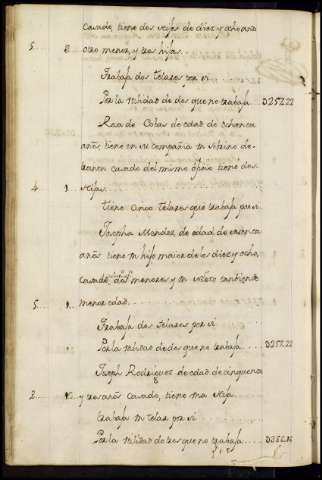 Casado, tiene dos hijos de diez y ocho años
5... 8. otro menor, y tres hijas.
Trabaja dos telares por si
Por la mitad de dos que no trabaja. D252.22
Rosa de Colas de edad de ochenta
años, tiene en su compañia un Sobrino de
treinta casado del mismo oficio tiene dos
4... 1. hijas.
tiene cinco telares que trabaja por si.
Josepha Mendez de edad de
años tiene un hijo maior de los diez y ocho,
Casado, dos menores y un nieto tambien de
5... 1. menor edad.
Trabaja dos telares por si
Por la mitad de dos que no trabaja... D252.22
Joseph Rodriguez de edad de cinquenta
2... y tres años Casado, tiene una hija.
trabaja un telar por si
Por la mitad de tres que no trabaja.